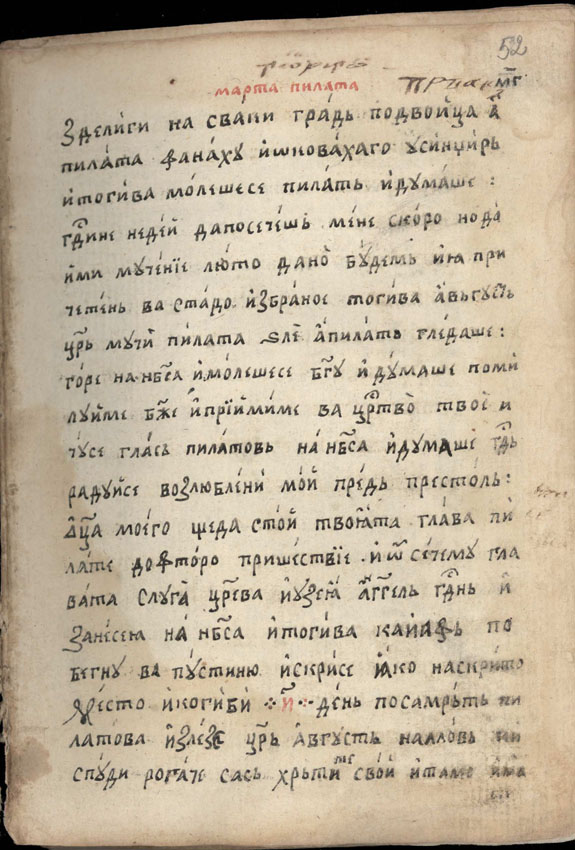 52
марта пилата
Зделиги на сваки гра́дь подвои́ца а҆
пила́та фана́ху и҆ѡкова́хаго у҆синџи́рь
и҆тоги́ва мо́лешесе пила́ть и҆ду́маше :
гд҃ине неде́й дапосече́шь ме́не ско́ро нода́
и҆ми муче́нїе лю́то дано̀ бу́демь и҆ꙗ при
че́тень ва ста́до и҆збра́ное тоги́ва а҆ѵгу́сть
цр҃ь мучѝ пила́та ѕлѐ а҆пила́ть гле́даше :
го́ре нанб҃са и҆мо́лешесе бг҃у и҆ду́маше помѝ
лу́йме бж҃е и҆прїи́миме ва цр҃тво̀ твоѐ и
чу́се гла́сь пила́товь нанб҃са и҆ду́маше гд҃ь
раду́йсе возлю́блени мо́й пре́дь престо́ль :
ѿц҃а моего̀ ще́да сто́й твоꙗ́та гла́ва пѝ
ла́те дофто́ро прише́ствїе . и҆ѿсе́чему гла
ва́та слуга̀ цр҃ева и҆у҆зеꙗ̀ а҆́гг҃ель гд҃нь и҆
зане́сею нанб҃са и҆тоги́ва каиа́фь по
бе́гну ва пусти́ню и҆скри́се ꙗ҆́ко наскри́то
ме́сто и҆коги́би и҃ де́нь посамрь́ть пи
ла́това и҆зле́зе цр҃ь а҆вгу́сть нало́вь
спу́ди рога́че сась хрьти́те свои́ и҆та́мо има